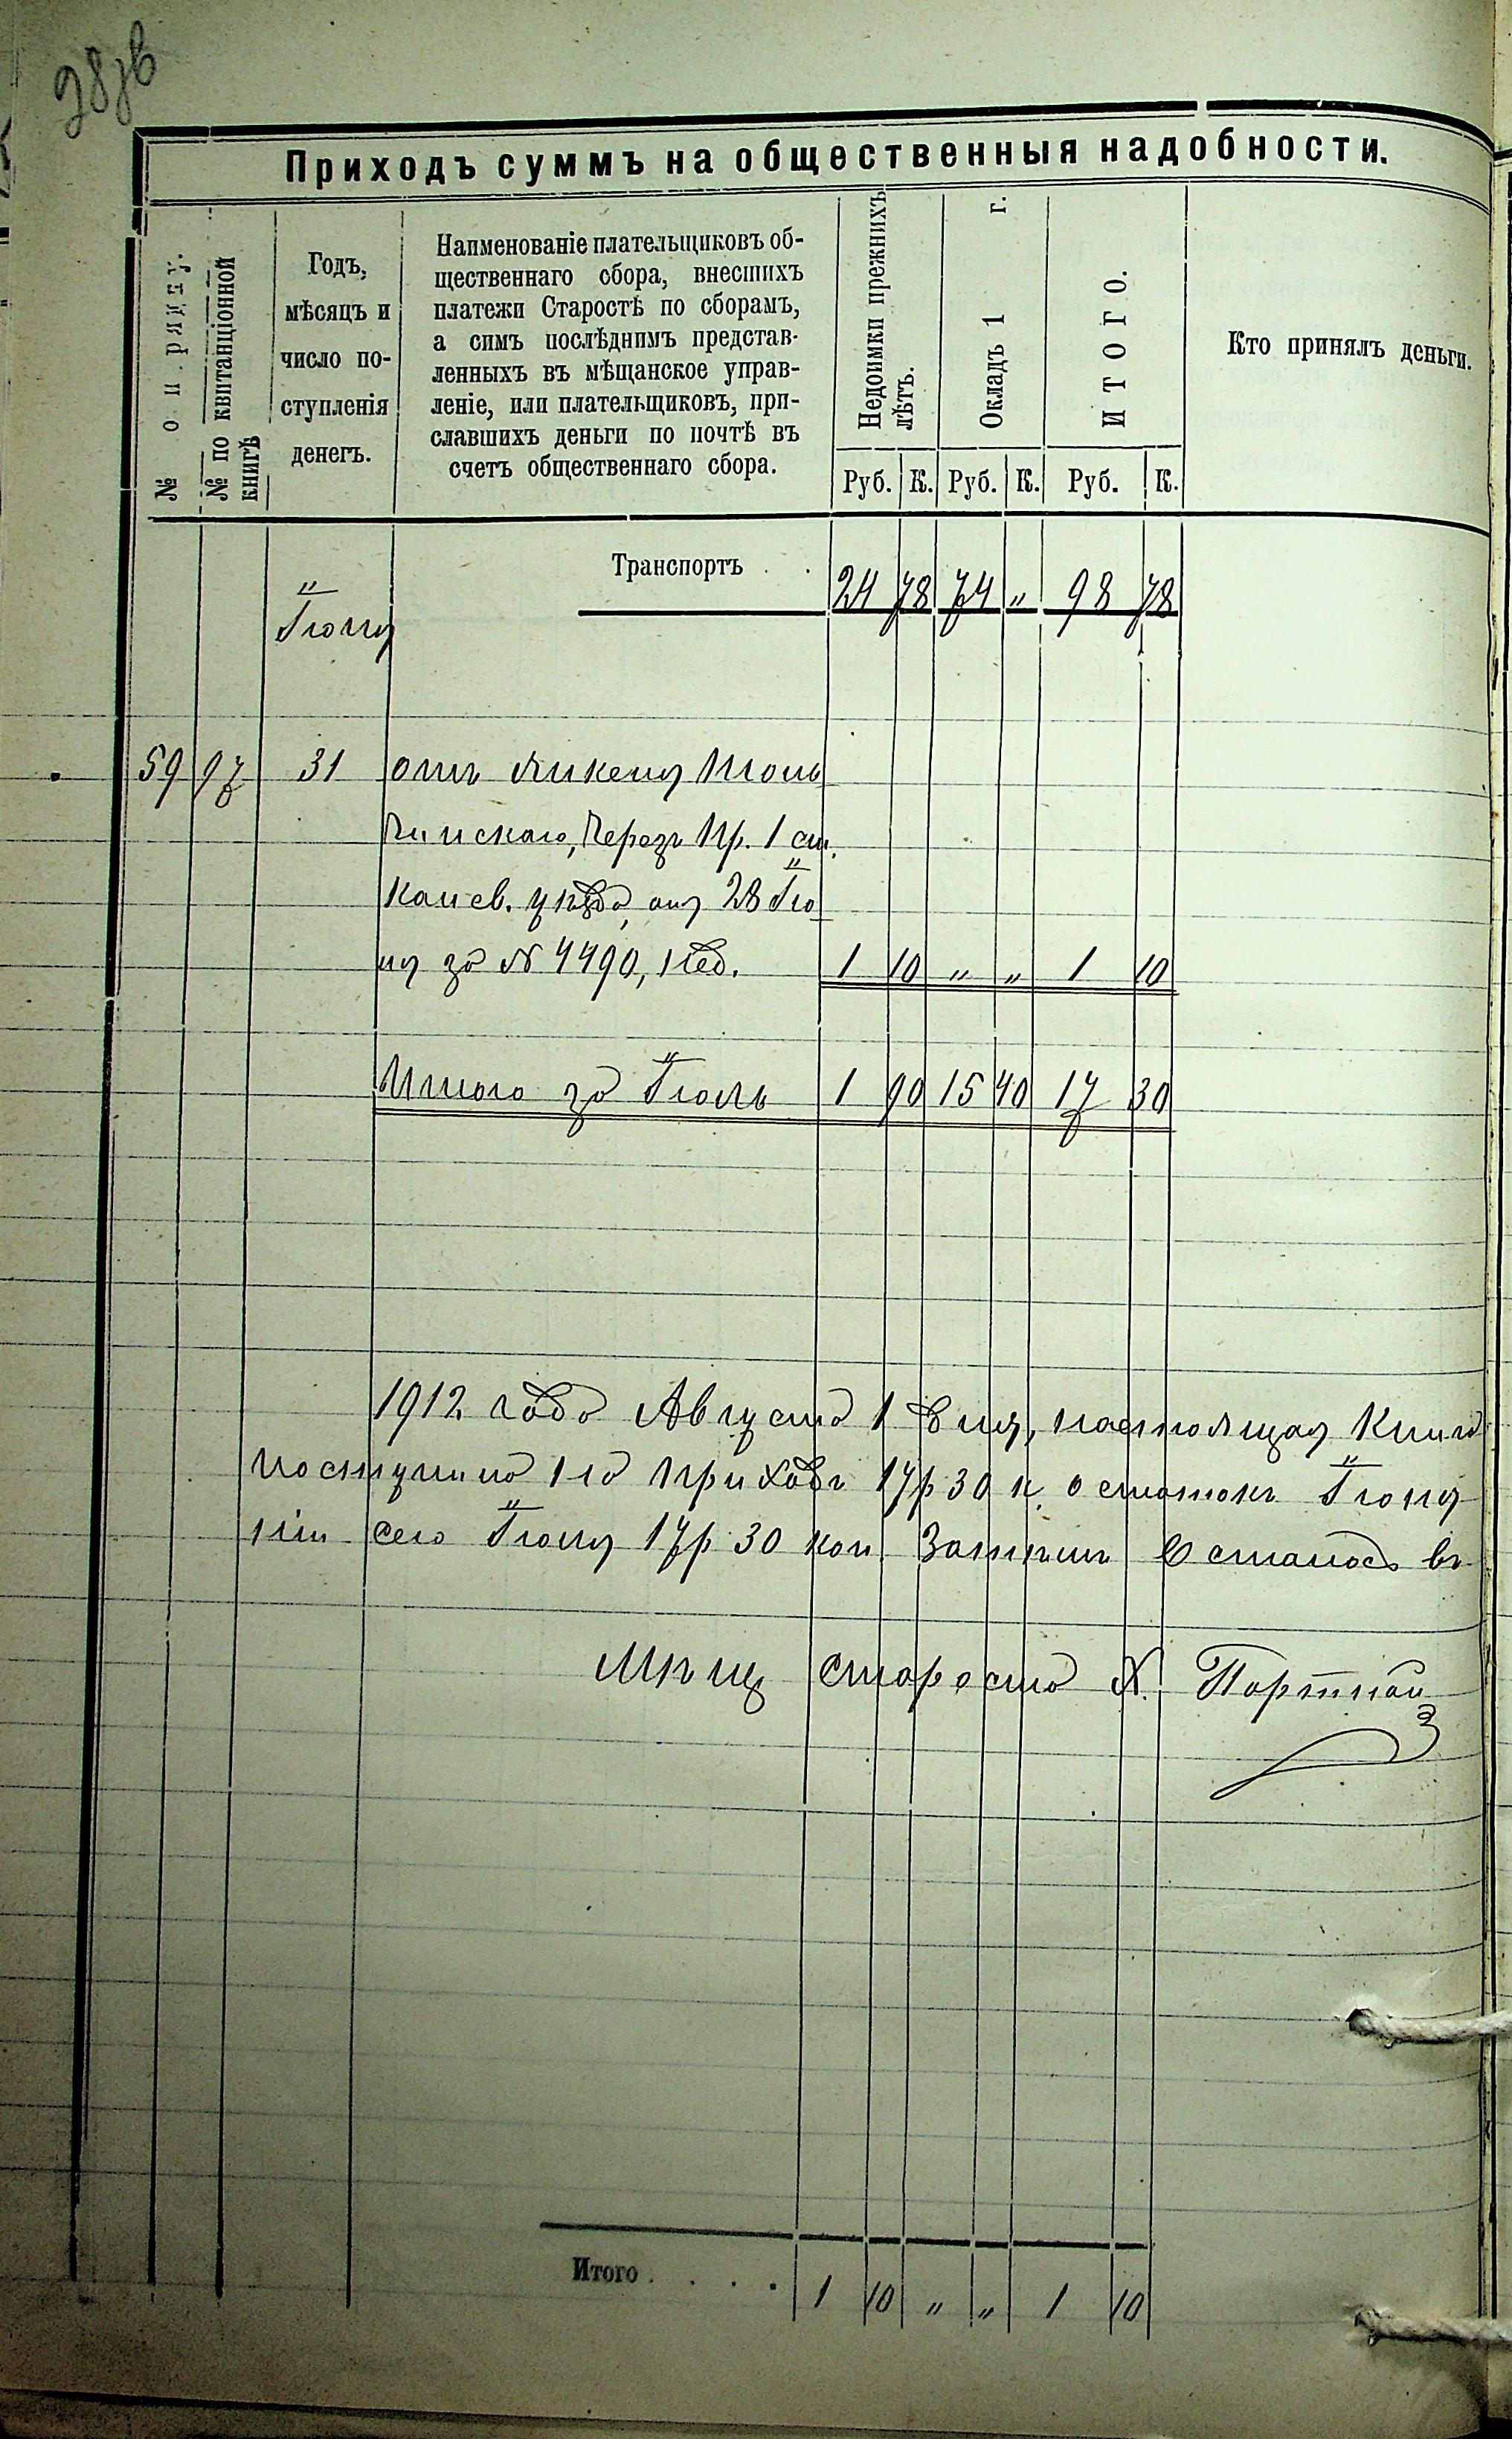 28зв
Приходъ суммъ на общественныя надобности.
№ по ряду.
№ по квитанціонной книгѣ
Годъ, мѣсяцъ и число поступленія денегъ.
Наименованіе плательщиковъ об-
щественнаго сбора, внесшихъ
платежи Старостѣ по сборамъ,
а симъ послѣднимъ представ-
ленныхъ въ мѣщанское управ-
леніе, или плательщиковъ, при-
славшихъ деньги по почтѣ въ
счетъ общественнаго сбора.
Недоимки прежнихъ лѣтъ.
Окладъ 1 г.
ИТОГО.
Кто принялъ деньги.
Руб. К. Руб. К. Руб. К.
Транспортъ . . 24 78 74 " 98 78
Іюля
59 97 31 отъ
чинскаго, Черезъ Пр. 1 ст.
Канев. уѣзда, отъ 28 Ію
ля за № 4490, нед. 1 10 " " 1 10
Итого за Іюль 1 90 15 40 17 30
1912 года Августа 1 дня, настоящая Книга
поступило на приходъ 17р 30 к остатокъ Іюня
нѣт сего Іюля 17р 30 коп Затѣмъ Осталось въ
Мѣщ Староста Х. Портной
Итого . . . . 1 10 " " 1 10